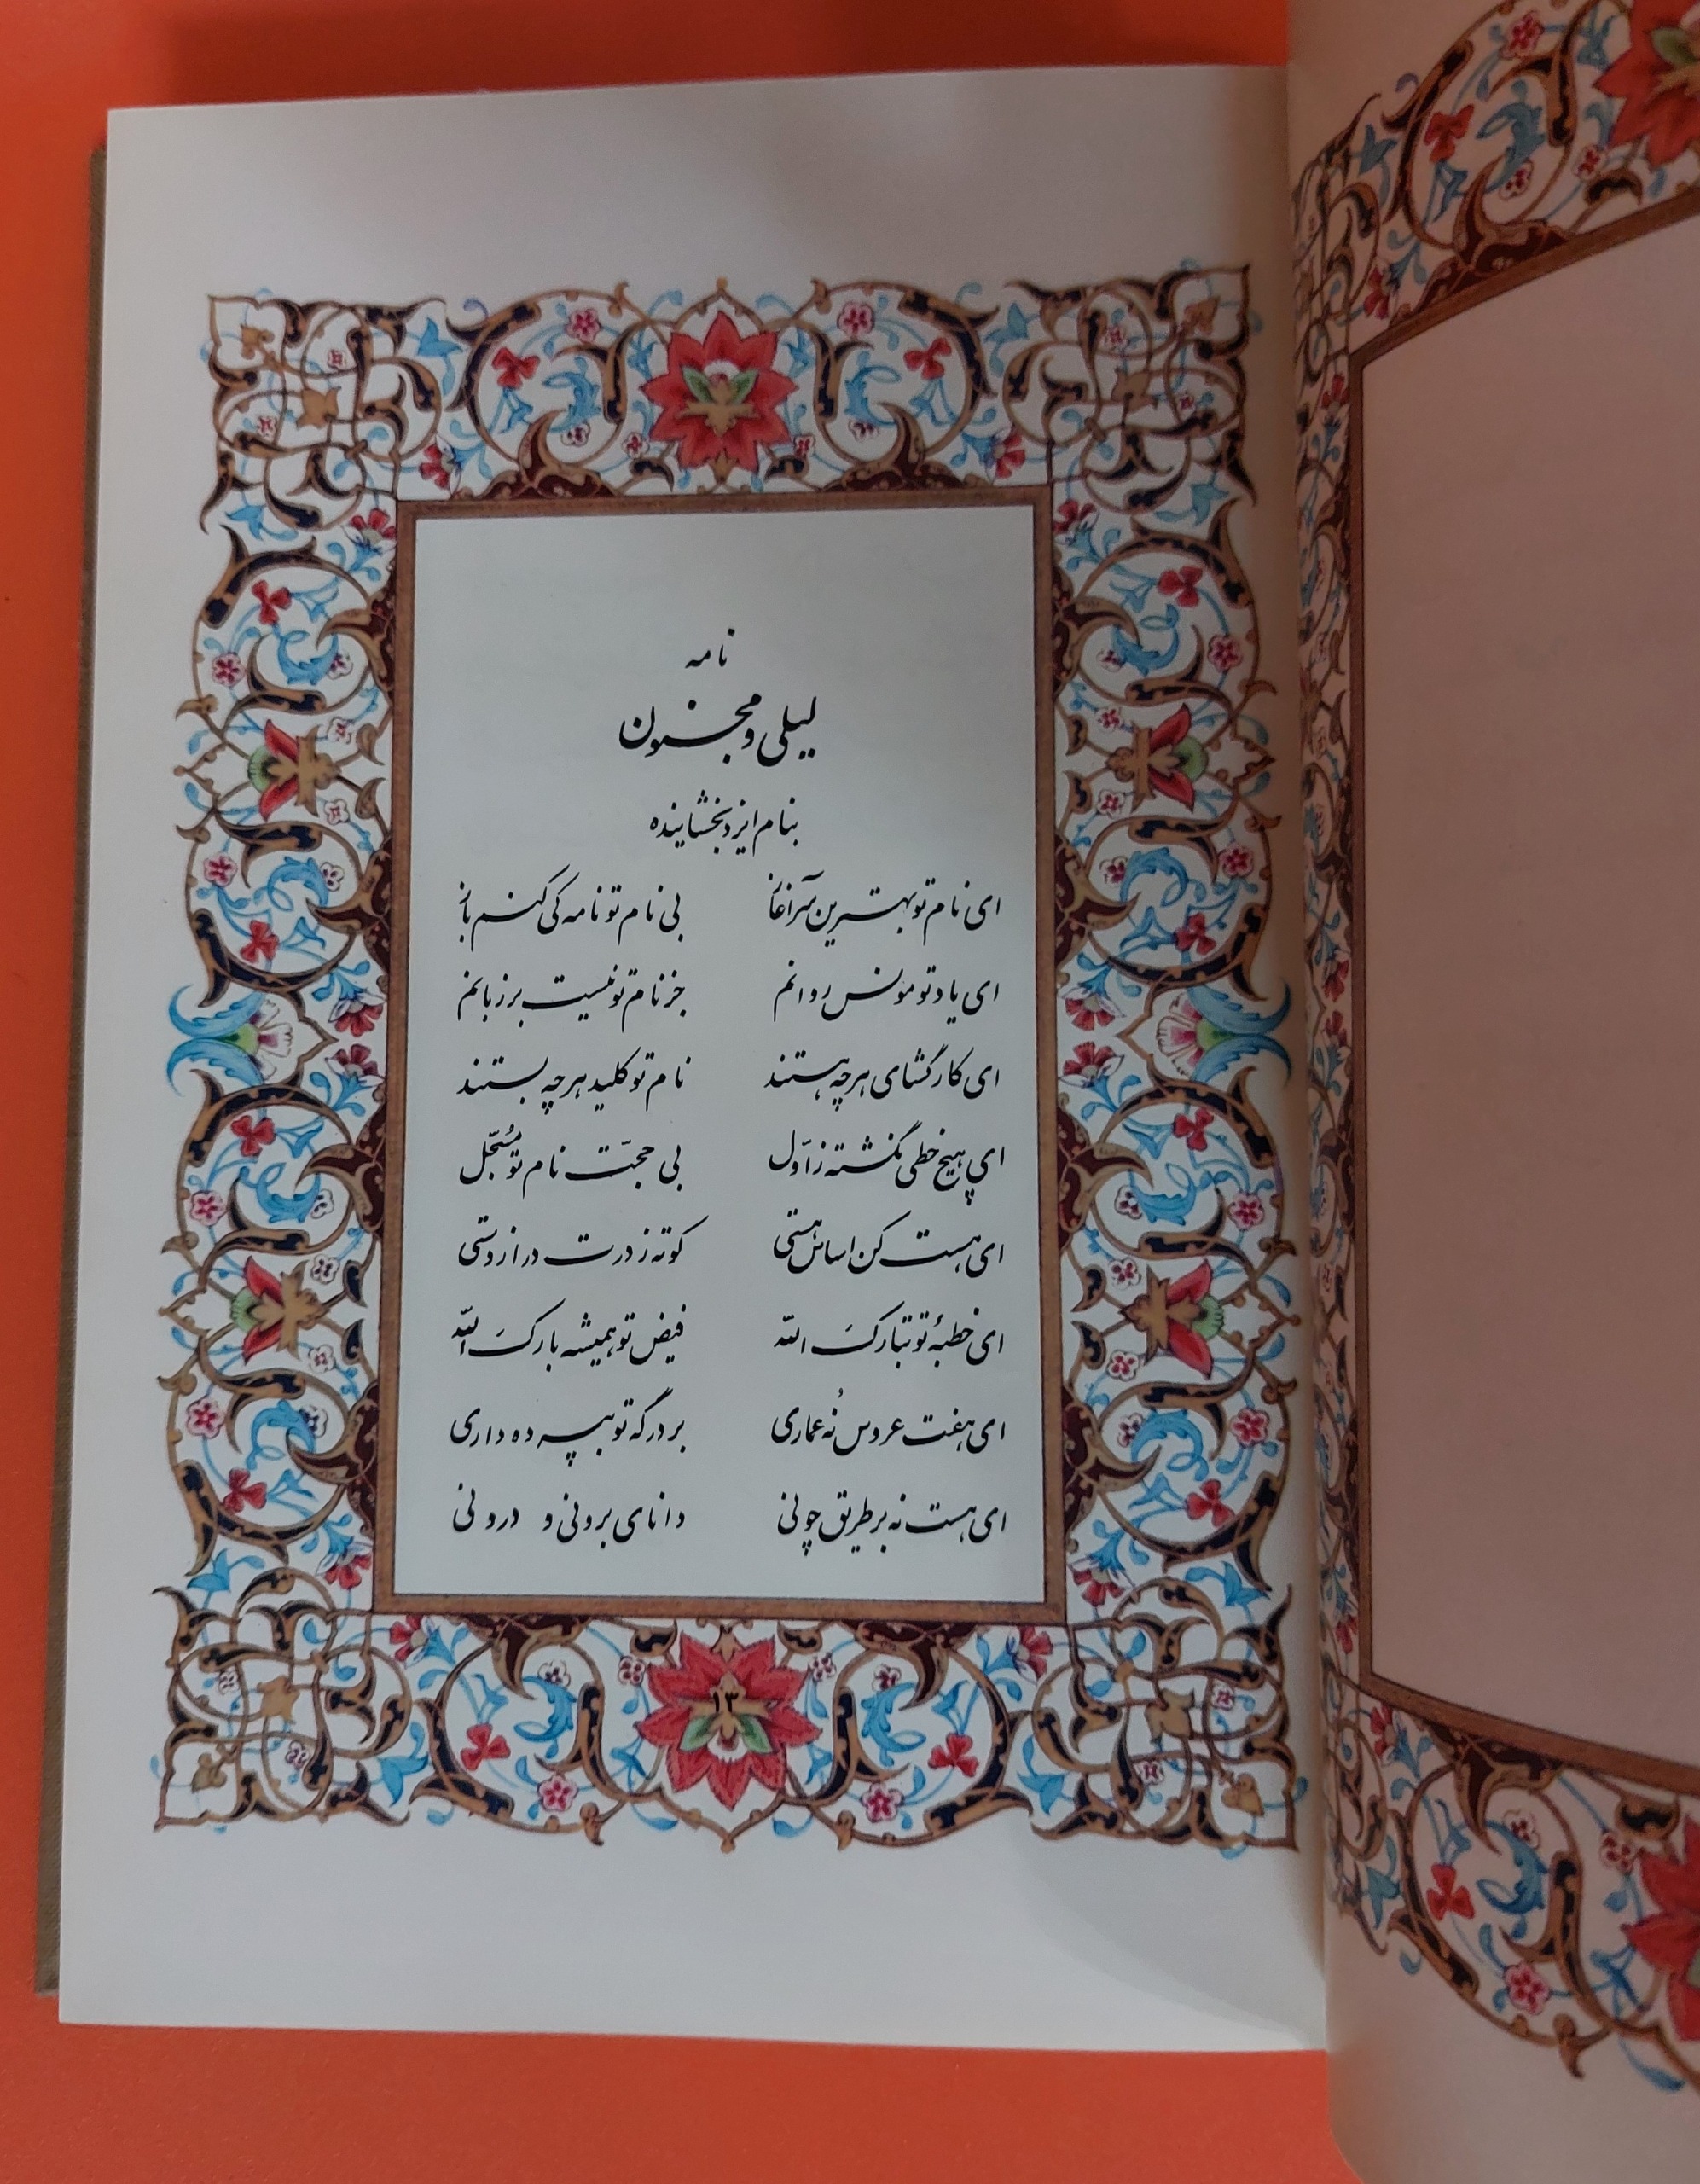 نامه
لیلی و مجنون
بنام ایزد بخشاینده
ای نام تو بهترین سرآغاز بی نام تو نامه کی کنم باز
ای یاد تو مونس روانم جز نام تو نیست بر زبانم
ای کارگشای هر چه هستند نام تو کلید هر چه بستند
ای هیچ خطی نگشته ز اوّل بی حجّت نام تو مُسَجّل
ای هست کن اساس هستی کوته ز درت درازدستی
ای خطبهٔ تو تبارکَ اللّه فیض تو همیشه بارکَ اللّه
ای هفت عروس نُه عماری بر درگه تو بپرده داری
ای هست نه بر طریق چونی دانای برونی و درونی
۱۳